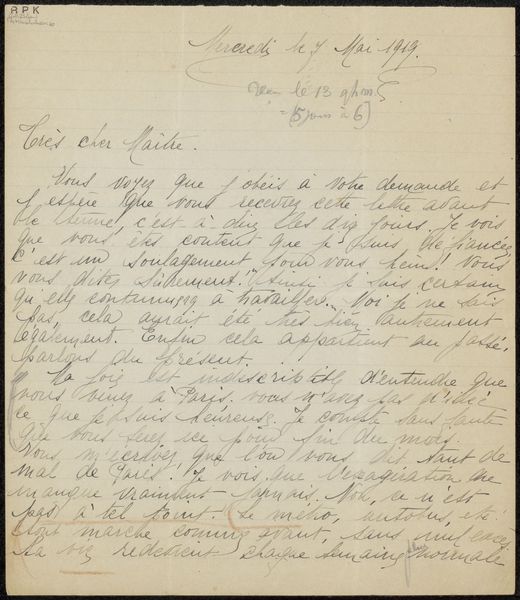 RPK
Mercredi le 7 Mai 1919.
le 13
= (5 jours à 6)
Très cher Maître.
Vous voyez que j'obéis à votre demande et
j'espère que vous recevrez cette lettre avant
le terme, c'est à dire les dix jours. Je vois
que vous êtes content que je suis défiancée,
c'est un soulagement pour vous hein! Vous
vous dites sûrement! Ainsi je suis certain
qu'elle continuera à travailler... Moi je ne sais
pas, cela aurait été très bien autrement
également. Enfin cela appartient au passé,
parlons du présent.
Ma joie est indiscriptible d'entendre que
vous venez à Paris. Vous n'avez pas d'idée
ce que je suis heureuse. Je compte sans faute
que vous serez ici pour fin du mois.
Vous m'écrivez que l'on vous dit tant de
mal de Paris! Je vois que l'exagération ne
manque vraiment jamais. Non, ce n'est
pas à tel point! Le métro, autobus, etc.
tout marche comme avant, sans
La vie redevient chaque semaine plus normale